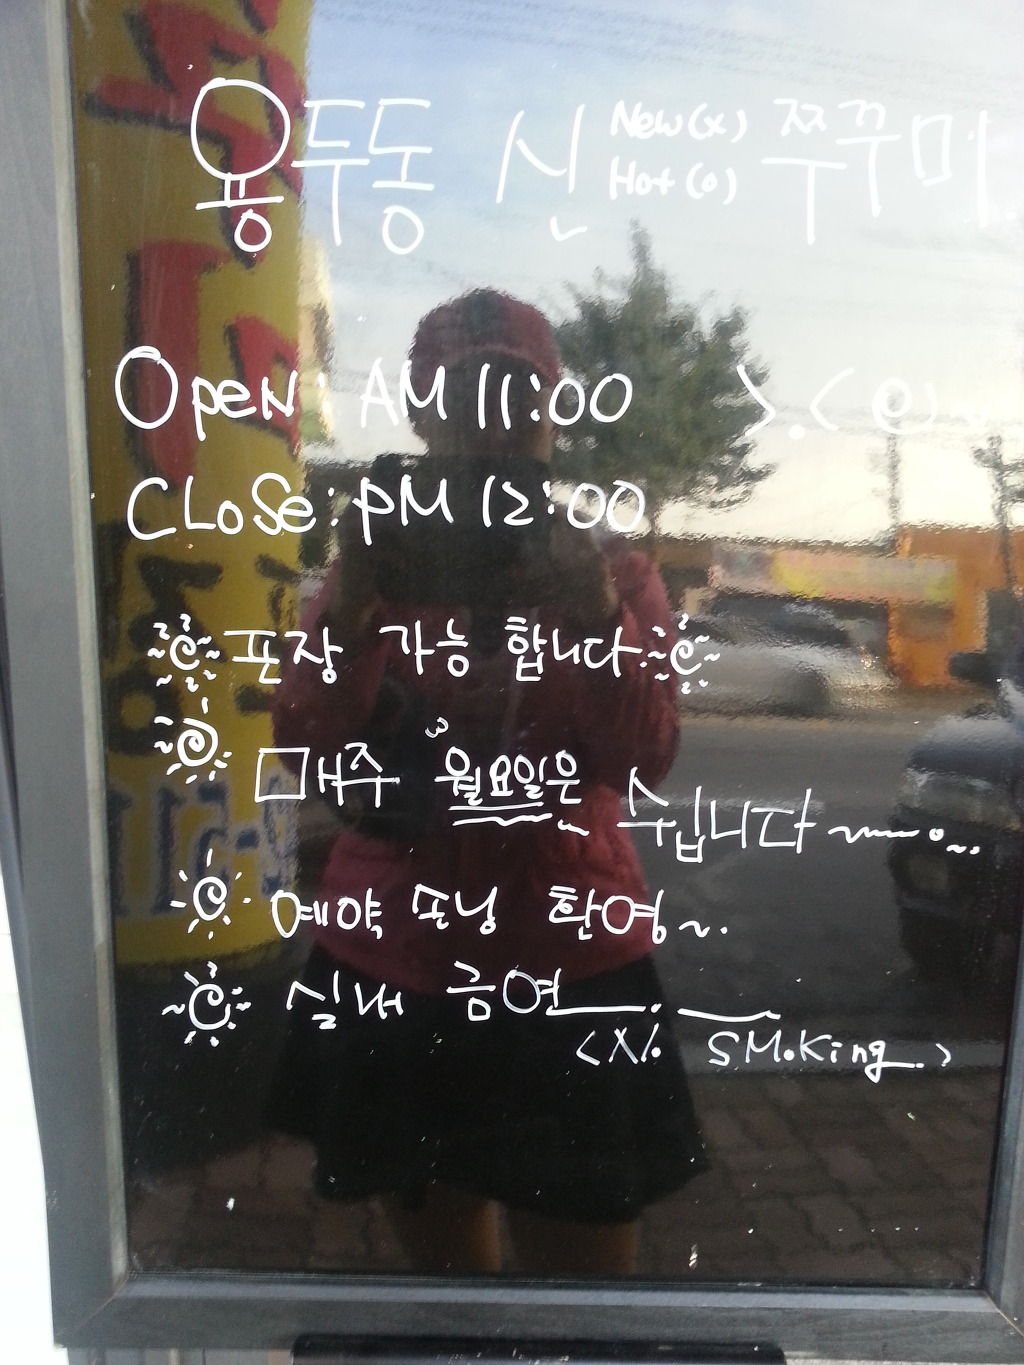 용두동 신 New(x) Hot(o) 쭈꾸미
Open: AM 11:00 >.<
CLoSe: PM 12:00
포장 가능 합니다.
매주 월요일은 쉽니다~
예약 손님 환영~.
실내 금연
<X. SMoKing.>